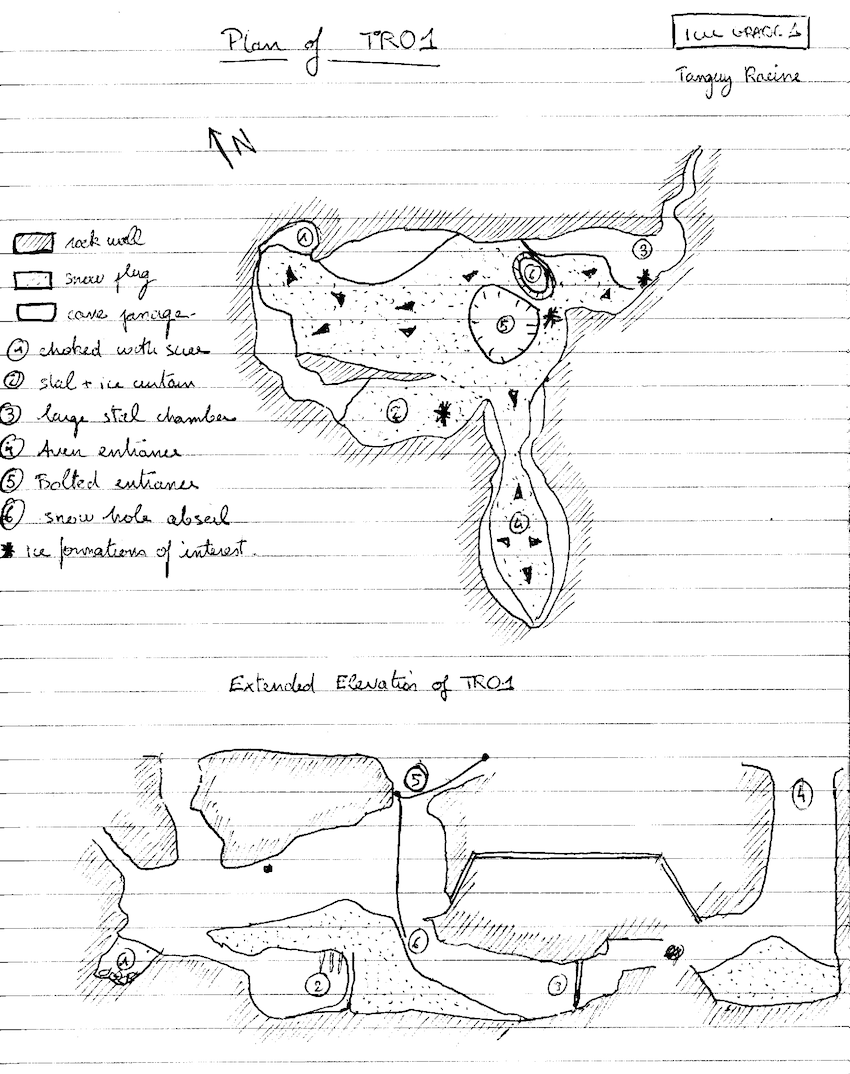 Plan of TRO1
ICCC GRADE 1
Tanguy Racine
N
rock wall
snow plug
cave passage
1 choked with scree
2 stal + ice curtain
3 large stal chamber
4 Aven entrance
5 Bolted entrance
6 snow hole abseil
* Ice formations of interest.
1
6
3
5
2
4
Extended Elevation of TRO1
5
4
6
1
2
3